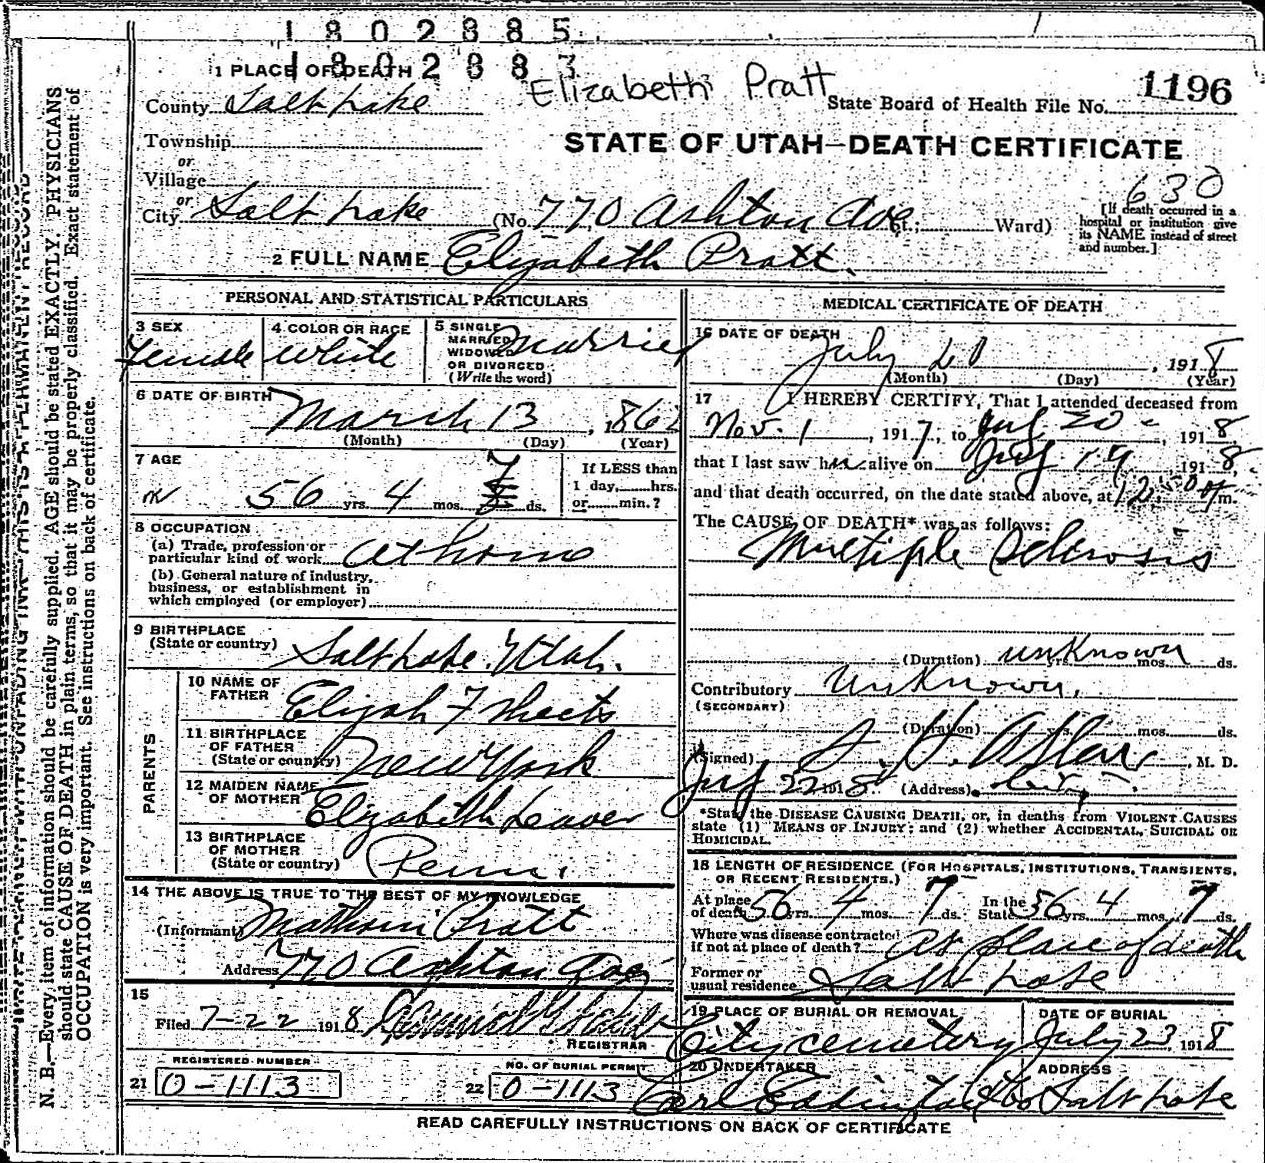 1802885
1802883
Elizabeth Pratt
1 PLACE OF DEATH
County Salt Lake
State Board of Health File No. 1196
Township
or
Village
or
STATE OF UTAH—DEATH CERTIFICATE
630
City Salt Lake (No. 770 Ashton Ave St.; Ward)
[If death occurred in a hospital or institution give its NAME instead of street and number.]
2 FULL NAME Elizabeth Pratt.
PERSONAL AND STATISTICAL PARTICULARS
3 SEX
Female
4 COLOR OR RACE
White
5 SINGLE
MARRIED
WIDOWED
OR DIVORCED
(Write the word)
Married
6 DATE OF BIRTH
March 13, 1862
(Month) (Day) (Year)
7 AGE
56 yrs. 4 mos. 7 ds.
If LESS than
1 day, hrs.
or min.?
8 OCCUPATION
(a) Trade, profession or
particular kind of work at home
(b) General nature of industry,
business, or establishment in
which employed (or employer)
9 BIRTHPLACE
(State or country) Salt Lake. Utah.
PARENTS
10 NAME OF
FATHER Elijah F Sheets
11 BIRTHPLACE
OF FATHER
(State or country) New York
12 MAIDEN NAME
OF MOTHER Elizabeth Leaver
13 BIRTHPLACE
OF MOTHER
(State or country) Penn.
14 THE ABOVE IS TRUE TO THE BEST OF MY KNOWLEDGE
(Informant) Pratt
Address 770 Ashton Ave
15
Filed 7-22 1918
REGISTRAR
REGISTERED NUMBER
21 0-1113
NO. OF BURIAL PERMIT
22 0-1113
MEDICAL CERTIFICATE OF DEATH
16 DATE OF DEATH
July 20, 1918
(Month) (Day) (Year)
17 I HEREBY CERTIFY, That I attended deceased from
Nov. 1, 1917, to July 20, 1918
that I last saw her alive on July 19, 1918,
and that death occurred, on the date stated above, at 12 m.
The CAUSE OF DEATH* was as follows:
Multiple Sclerosis
(Duration) unknown yrs. mos. ds.
Contributory Unknown.
(SECONDARY)
(Duration) yrs. mos. ds.
(Signed) S. H. Allen, M. D.
July 22 1918 (Address) City.
*State the DISEASE CAUSING DEATH, or, in deaths from VIOLENT CAUSES
state (1) MEANS OF INJURY; and (2) whether ACCIDENTAL, SUICIDAL OR
HOMICIDAL.
18 LENGTH OF RESIDENCE (FOR HOSPITALS, INSTITUTIONS, TRANSIENTS,
OR RECENT RESIDENTS.)
At place
of death 56 yrs. 4 mos. 7 ds. In the
State 56 yrs. 4 mos. 7 ds.
Where was disease contracted
if not at place of death? At place of death
Former or
usual residence Salt Lake
19 PLACE OF BURIAL OR REMOVAL
City cemetery
DATE OF BURIAL
July 23 1918
20 UNDERTAKER
ADDRESS
Salt Lake
READ CAREFULLY INSTRUCTIONS ON BACK OF CERTIFICATE
WRITE PLAINLY, WITH UNFADING INK—THIS IS A PERMANENT RECORD
N. B.—Every item of information should be carefully supplied. AGE should be stated EXACTLY. PHYSICIANS
should state CAUSE OF DEATH in plain terms, so that it may be properly classified. Exact statement of
OCCUPATION is very important. See instructions on back of certificate.